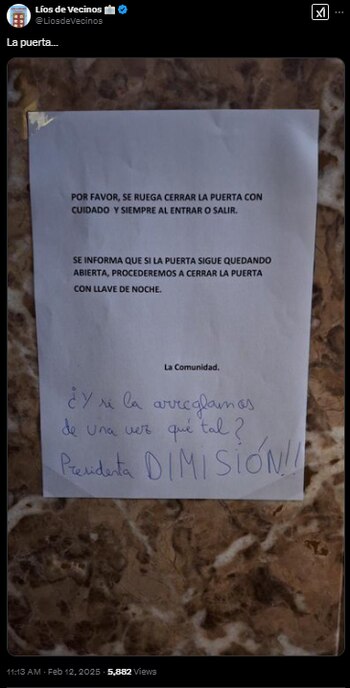 Líos de Vecinos
@LiosdeVecinos
La puerta...
POR FAVOR, SE RUEGA CERRAR LA PUERTA CON
CUIDADO Y SIEMPRE AL ENTRAR O SALIR.
SE INFORMA QUE SI LA PUERTA SIGUE QUEDANDO
ABIERTA, PROCEDEREMOS A CERRAR LA PUERTA
CON LLAVE DE NOCHE.
La Comunidad.
¿Y si la arreglamos
de una vez qué tal?
Presidenta DIMISIÓN!!
11:13 AM · Feb 12, 2025 · 5,882 Views